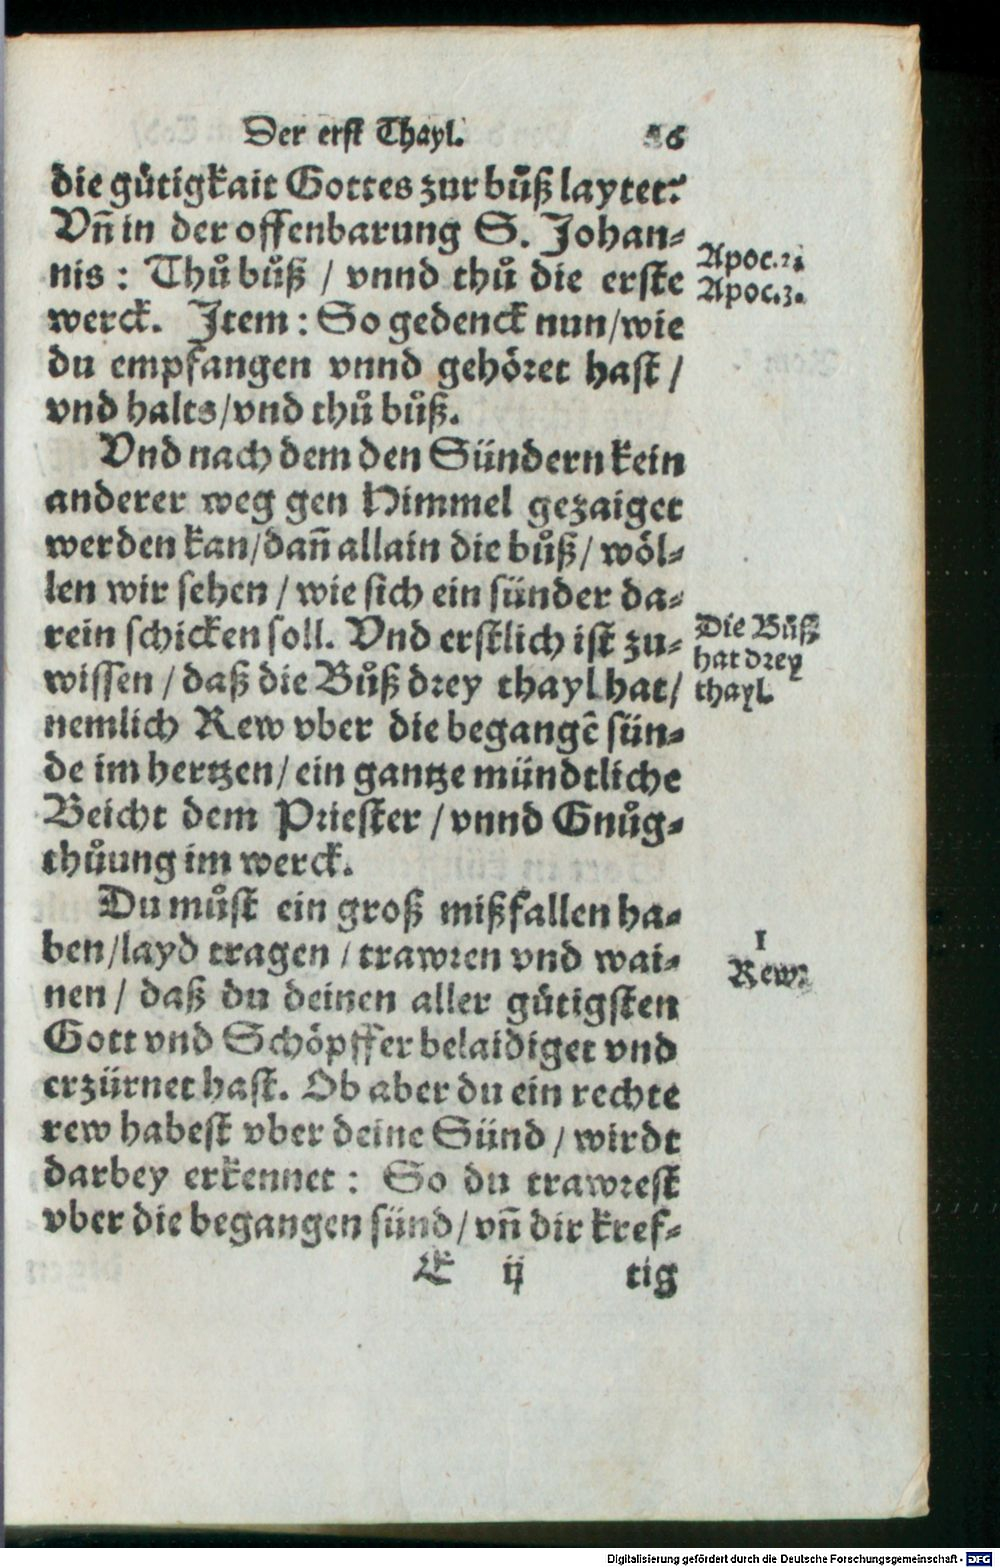 Der erst Thayl. 36
die gütigkait Gottes zur bůß laytet:
Vñ in der offenbarung S. Johan-
nis: Thů bůß / vnnd thů die erste
werck. Item: So gedenck nun/wie
du empfangen vnnd gehöret hast /
vnd halts/vnd thů bůß.
Apoc.2.
Apoc.3.
Vnd nach dem den Sündern kein
anderer weg gen Himmel gezaiget
werden kan/dañ allain die bůß/ wöl-
len wir sehen / wie sich ein sünder da-
rein schicken soll. Vnd erstlich ist zu-
wissen / daß die Bůß drey thayl hat/
nemlich Rew vber die begangẽ sün-
de im hertzen/ ein gantze mündtliche
Beicht dem Priester / vnnd Gnůg-
thůung im werck.
Die Bůß
hat drey
thayl.
Du můst ein groß mißfallen ha-
ben/layd tragen / trawren vnd wai-
nen / daß du deinen aller gütigsten
Gott vnd Schöpffer belaidiget vnd
erzürnet hast. Ob aber du ein rechte
rew habest vber deine Sünd / wirdt
darbey erkennet: So du trawrest
vber die begangen sünd/ vñ dir kref-
1
Rew.
E ij tig
Digitalisierung gefördert durch die Deutsche Forschungsgemeinschaft - DFG